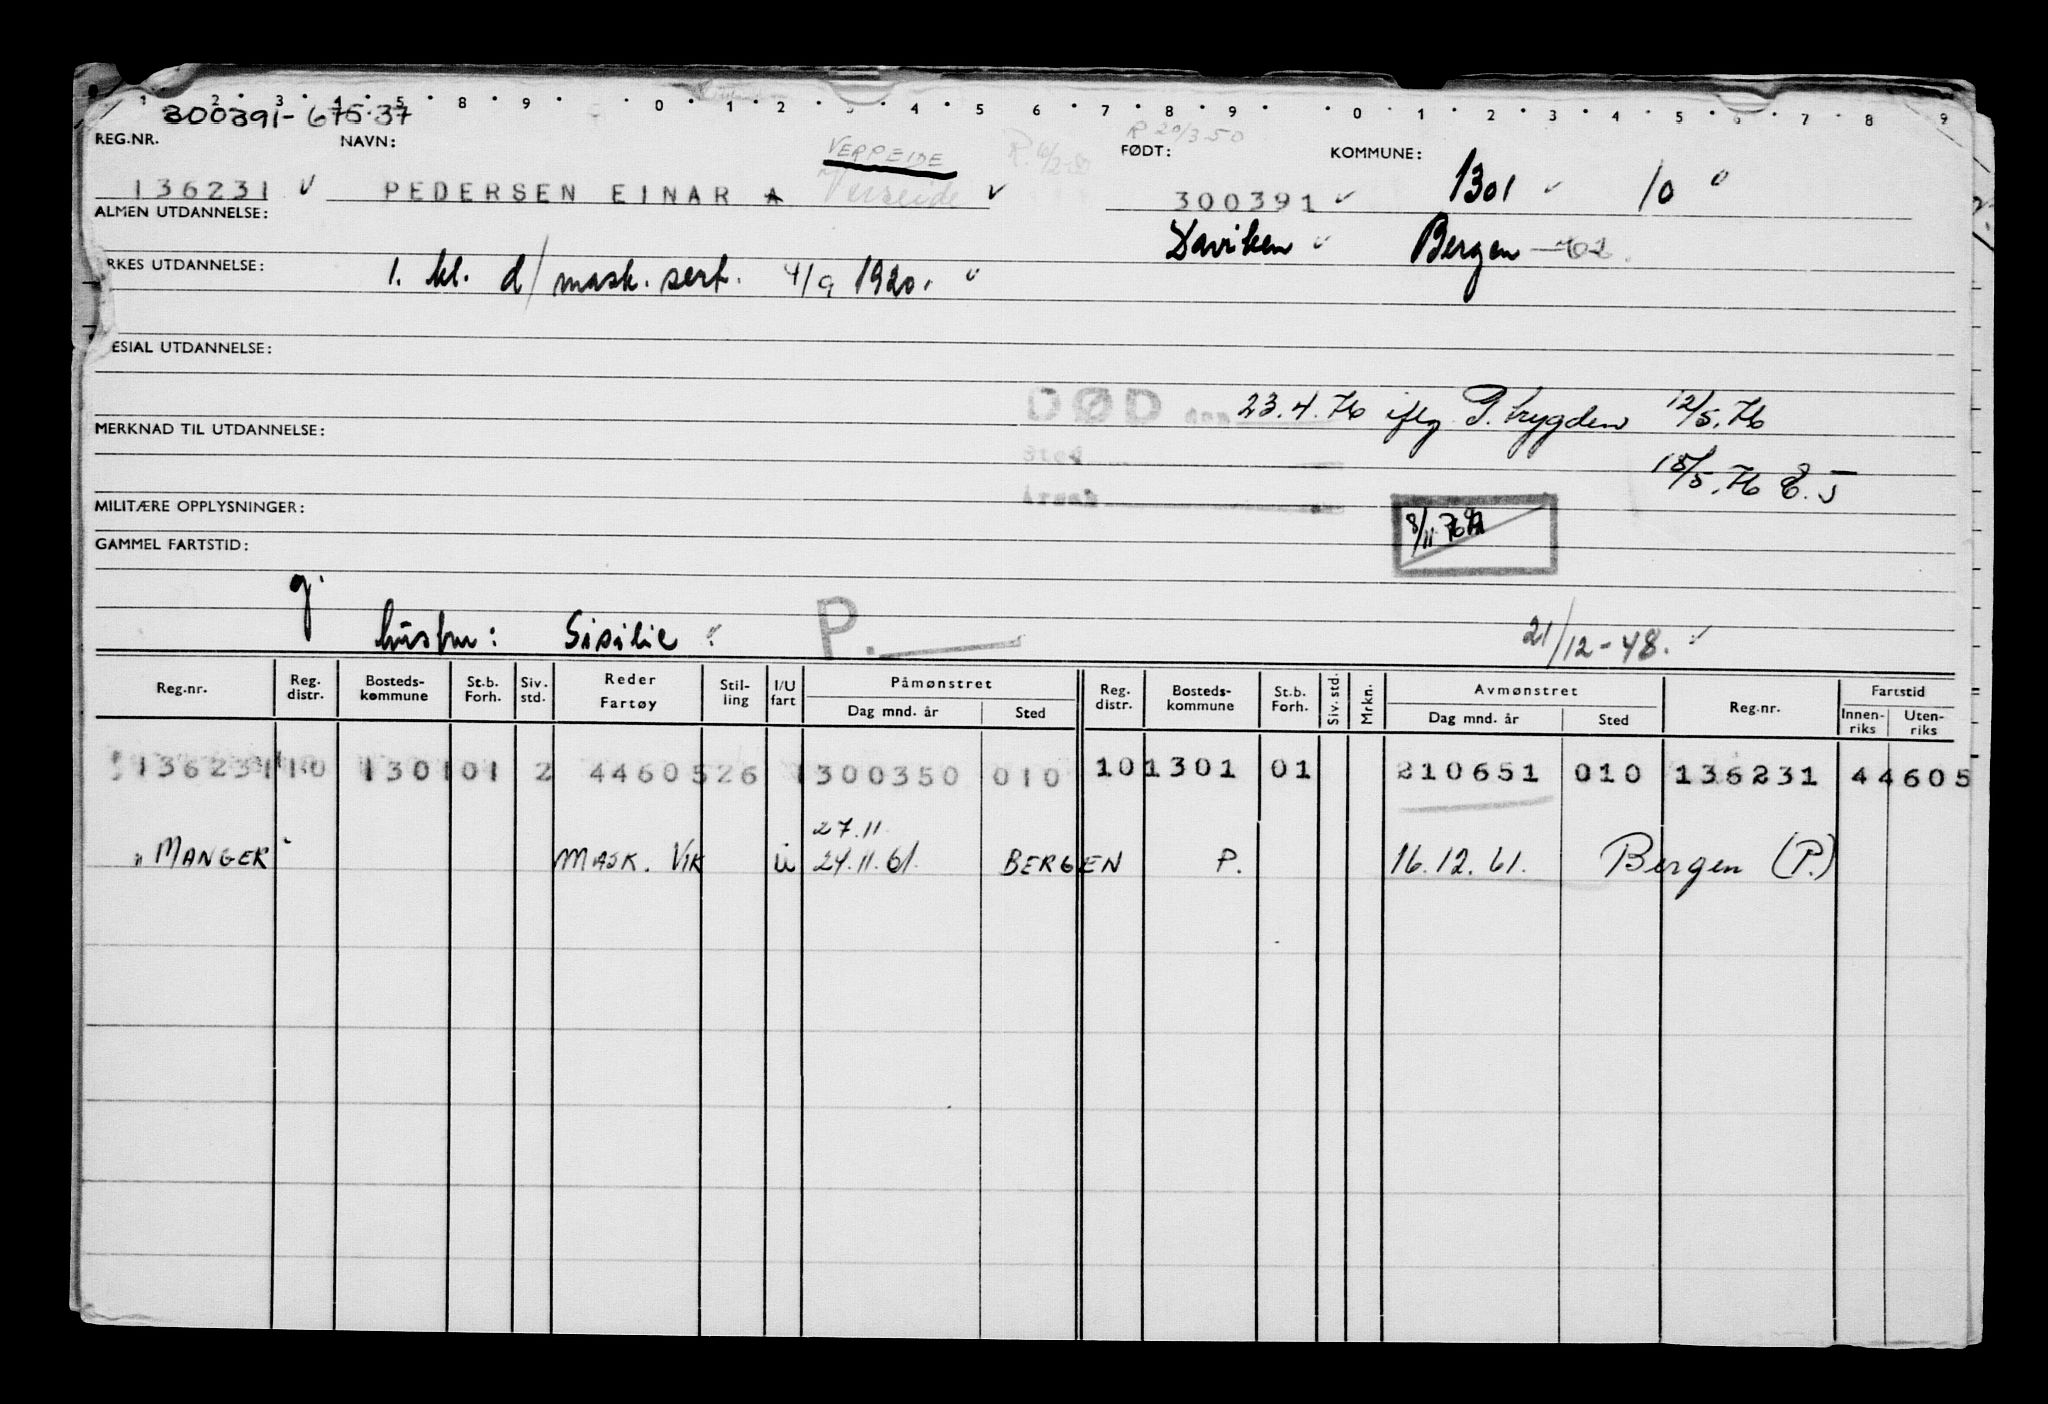 1 2 3 4 5 8 9 0 1 2 3 4 5 6 7 8 9 0 1 2 3 4 5 6 7 8 9
300391-675.37
R 20/3-50
REG.NR. NAVN: FØDT: KOMMUNE:
VERPEIDE
136231 v PEDERSEN EINAR A v 300391 v 1301 v 10
ALMEN UTDANNELSE:
Daviken v Bergen
RKES UTDANNELSE: 1. kl. d/mask. sert. 4/9 1920. v
ESIAL UTDANNELSE:
DØD den 23.4.76 iflg P. trygden 12/5.76
MERKNAD TIL UTDANNELSE:
Sted
18/5.76 E. J
MILITÆRE OPPLYSNINGER: Årsak
8/11 76
GAMMEL FARTSTID:
g.
hustru: Sisilie P. 21/12-48. v
Reg.nr. Reg. distr. Bosteds-kommune St.b. Forh. Siv. std. Reder Fartøy Stil-ling I/U fart Påmønstret Dag mnd. år Sted Reg. distr. Bosteds-kommune St.b. Forh. Siv. std. Mrkn. Avmønstret Dag mnd. år Sted Reg.nr. Fartstid Innen-riks Uten-riks
136231 10 1301 01 2 44605 26 1 300350 010 10 1301 01 210651 010 136231 44605
27.11
"MANGER" MASK. VIK U 24.11.61. BERGEN P. 16.12.61. Bergen (P.)